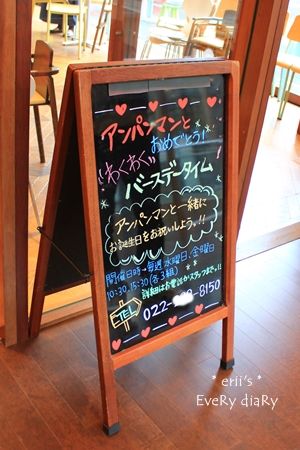 アンパンマンと
おめでとう!
わくわく
バースデータイム
アンパンマンと一緒に
お誕生日をお祝いしよう!!
開催日時→毎週 水曜日、金曜日
10:30、15:30(各3組)
詳細はお電話かスタッフまで!!
TEL
022- -8150
* erii's *
EveRy diaRy